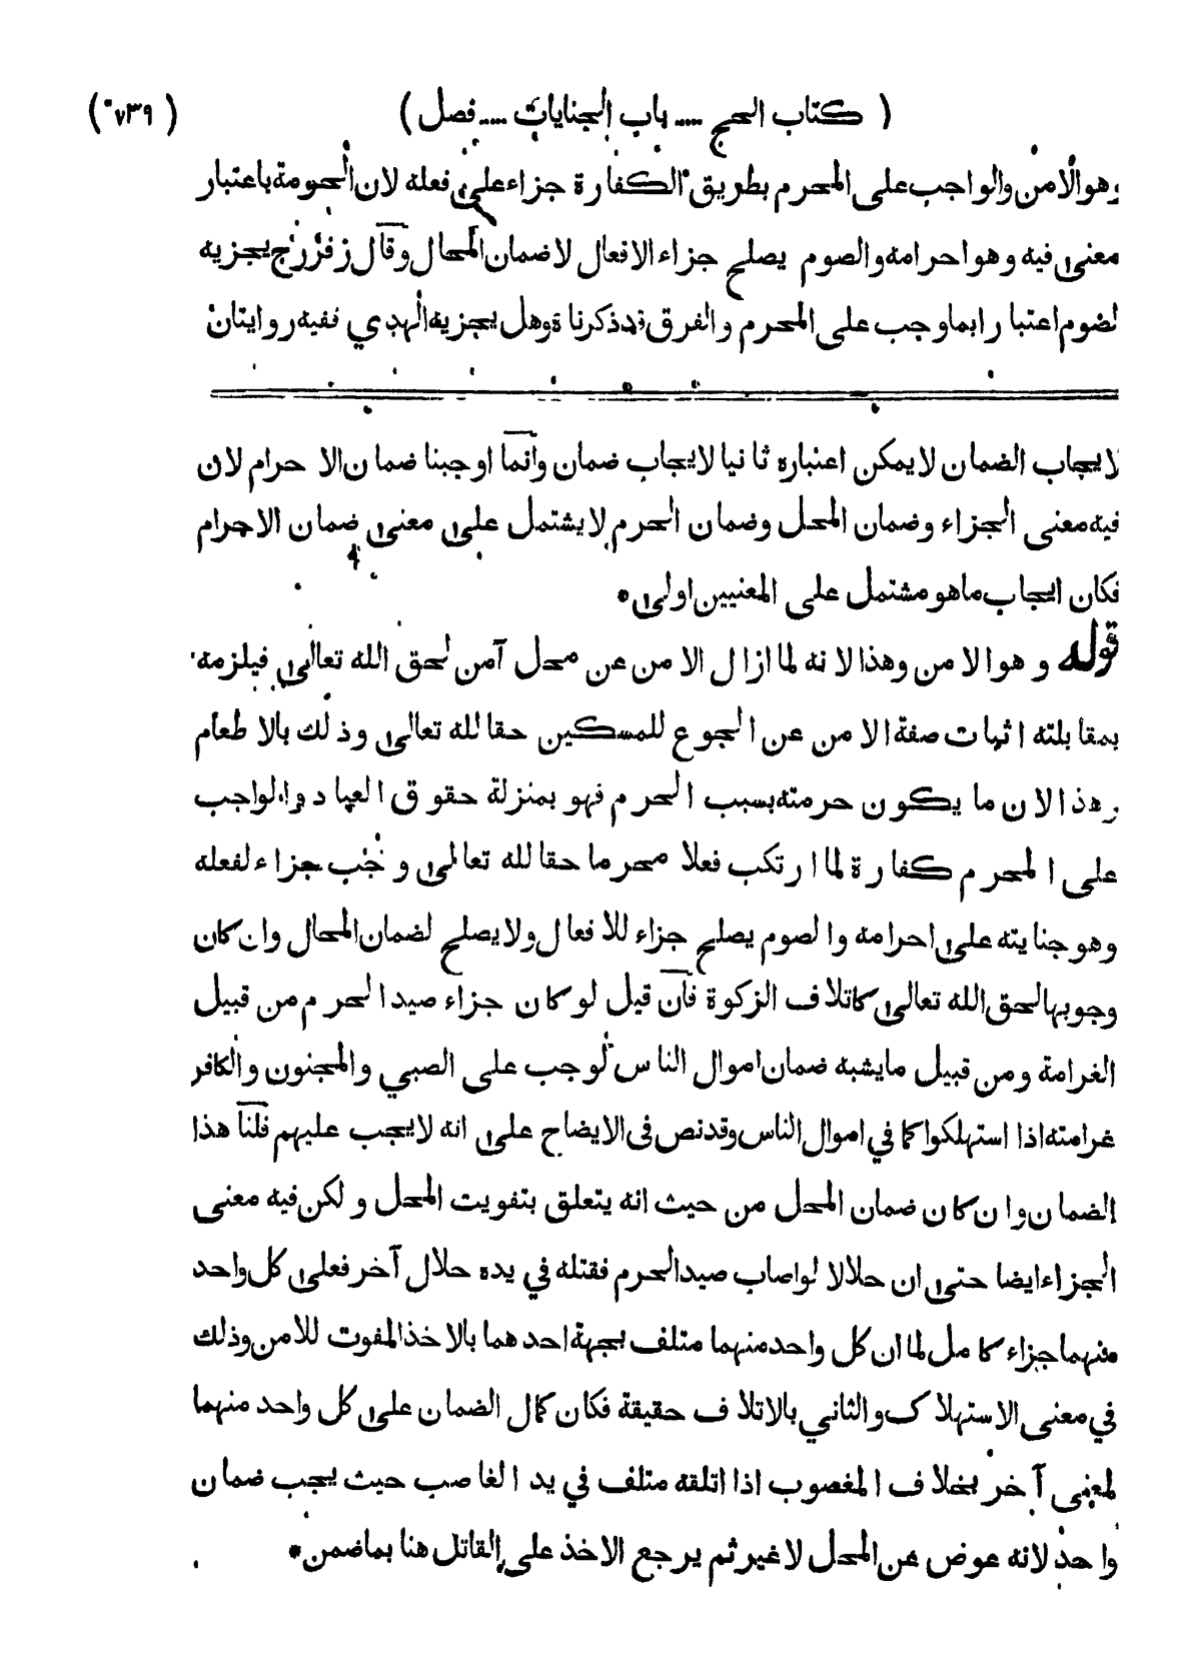 ( كتاب الحج .... باب الجنايات .... فصل ) ( ٧٣٩ )
وهو الامن والواجب على المحرم بطريق الكفارة جزاء على فعله لان الحرمة باعتبار
معنى فيه وهو احرامه والصوم يصلح جزاء الافعال لا ضمان المحال وقال زفر رح يجزيه
لصوم اعتبارا بما وجب على المحرم والفرق قد ذكرناه وهل يجزيه الهدي ففيه روايتان
لايجاب الضمان لا يمكن اعتباره ثانيا لايجاب ضمان وانما اوجبنا ضمان الاحرام لان
فيه معنى الجزاء وضمان المحل وضمان الحرم لا يشتمل على معنى ضمان الاحرام
فكان ايجاب ماهو مشتمل على المعنيين اولى *
قوله وهو الامن وهذا لانه لما ازال الامن عن محل آمن لحق الله تعالى فيلزمه
بمقابلته اثبات صفة الامن عن الجوع للمسكين حقا لله تعالى وذلك بالاطعام
وهذا لان ما يكون حرمته بسبب الحرم فهو بمنزلة حقوق العباد والواجب
على المحرم كفارة لما ارتكب فعلا محرما حقا لله تعالى وجب جزاء لفعله
وهو جنايته على احرامه والصوم يصلح جزاء للافعال ولا يصلح لضمان المحال وان كان
وجوبها لحق الله تعالى كاتلاف الزكوة فان قيل لو كان جزاء صيد الحرم من قبيل
الغرامة ومن قبيل مايشبه ضمان اموال الناس لوجب على الصبي والمجنون والكافر
غرامته اذا استهلكوا كما في اموال الناس وقد نص فى الايضاح على انه لايجب عليهم قلنا هذا
الضمان وان كان ضمان المحل من حيث انه يتعلق بتفويت المحل ولكن فيه معنى
الجزاء ايضا حتى ان حلالا لو اصاب صيد الحرم فقتله في يده حلال آخر فعلى كل واحد
منهما جزاء كامل لما ان كل واحد منهما متلف بجهة احدهما بالاخذ المفوت للامن وذلك
في معنى الاستهلاك والثاني بالاتلاف حقيقة فكان كمال الضمان على كل واحد منهما
لمعنى آخر بخلاف المغصوب اذا اتلفه متلف في يد الغاصب حيث يجب ضمان
واحد لانه عوض عن المحل لاغير ثم يرجع الاخذ على القاتل هنا بماضمن *